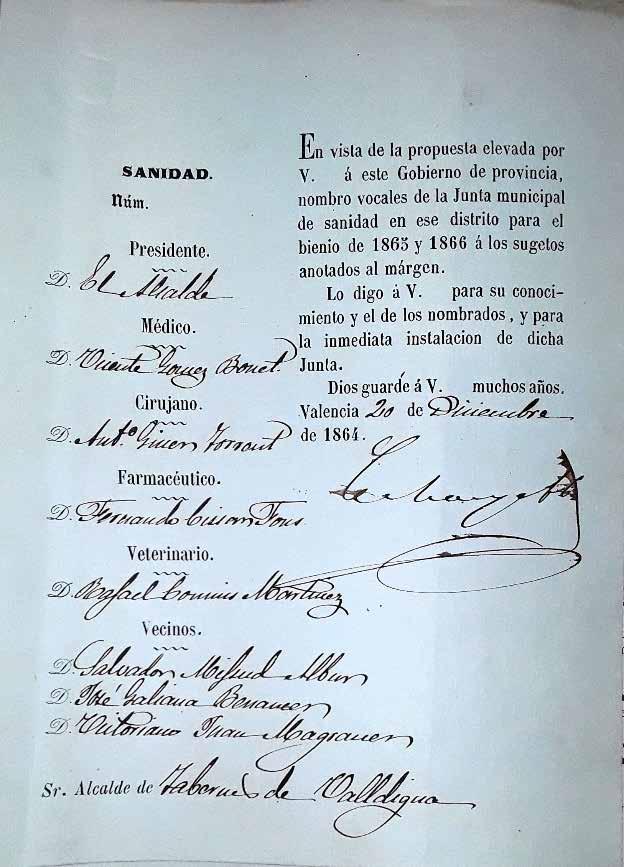 SANIDAD.
Núm.
Presidente.
D. El Alcalde
Médico.
D. Vicente Gomez Bonet.
Cirujano.
D. Ant.º Giner
Farmacéutico.
D. Fernando Cisscar Fons
Veterinario.
D. Rafael Martinez
Vecinos.
D. Salvador
D. José Galiana
D. Victoriano Magraner
En vista de la propuesta elevada por
V. á este Gobierno de provincia,
nombro vocales de la Junta municipal
de sanidad en ese distrito para el
bienio de 1865 y 1866 á los sugetos
anotados al márgen.
Lo digo á V. para su conoci-
miento y el de los nombrados, y para
la inmediata instalacion de dicha
Junta.
Dios guarde á V. muchos años.
Valencia 20 de Diciembre
de 1864.
Sr. Alcalde de Tabernes de Valldigna